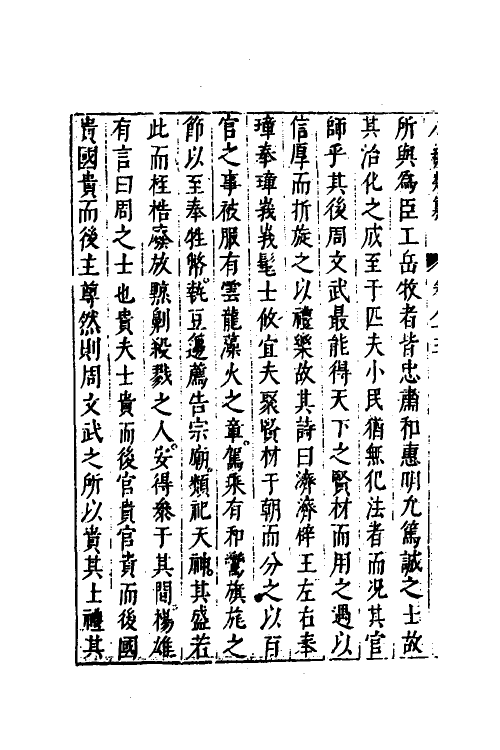 所與為臣工岳牧者皆忠肅和惠明允篤誠之士故
其治化之成至于匹夫小民猶無犯法者而況其官
師乎其後周文武最能得天下之賢材而用之遇以
信厚而折旋之以禮樂故其詩曰濟濟辟王左右奉
璋奉璋峩峩髦士攸宜夫聚賢材于朝而分之以百
官之事被服有雲龍藻火之章駕乘有和鸞旗旄之
節以至奉牲幣執豆籩薦告宗廟類祀天神其盛若
此而桎梏廢放黥劓殺戮之人安得叅于其間楊雄
有言曰周之士也貴夫士貴而後官貴官貴而後國
貴國貴而後主尊然則周文武之所以貴其士禮其